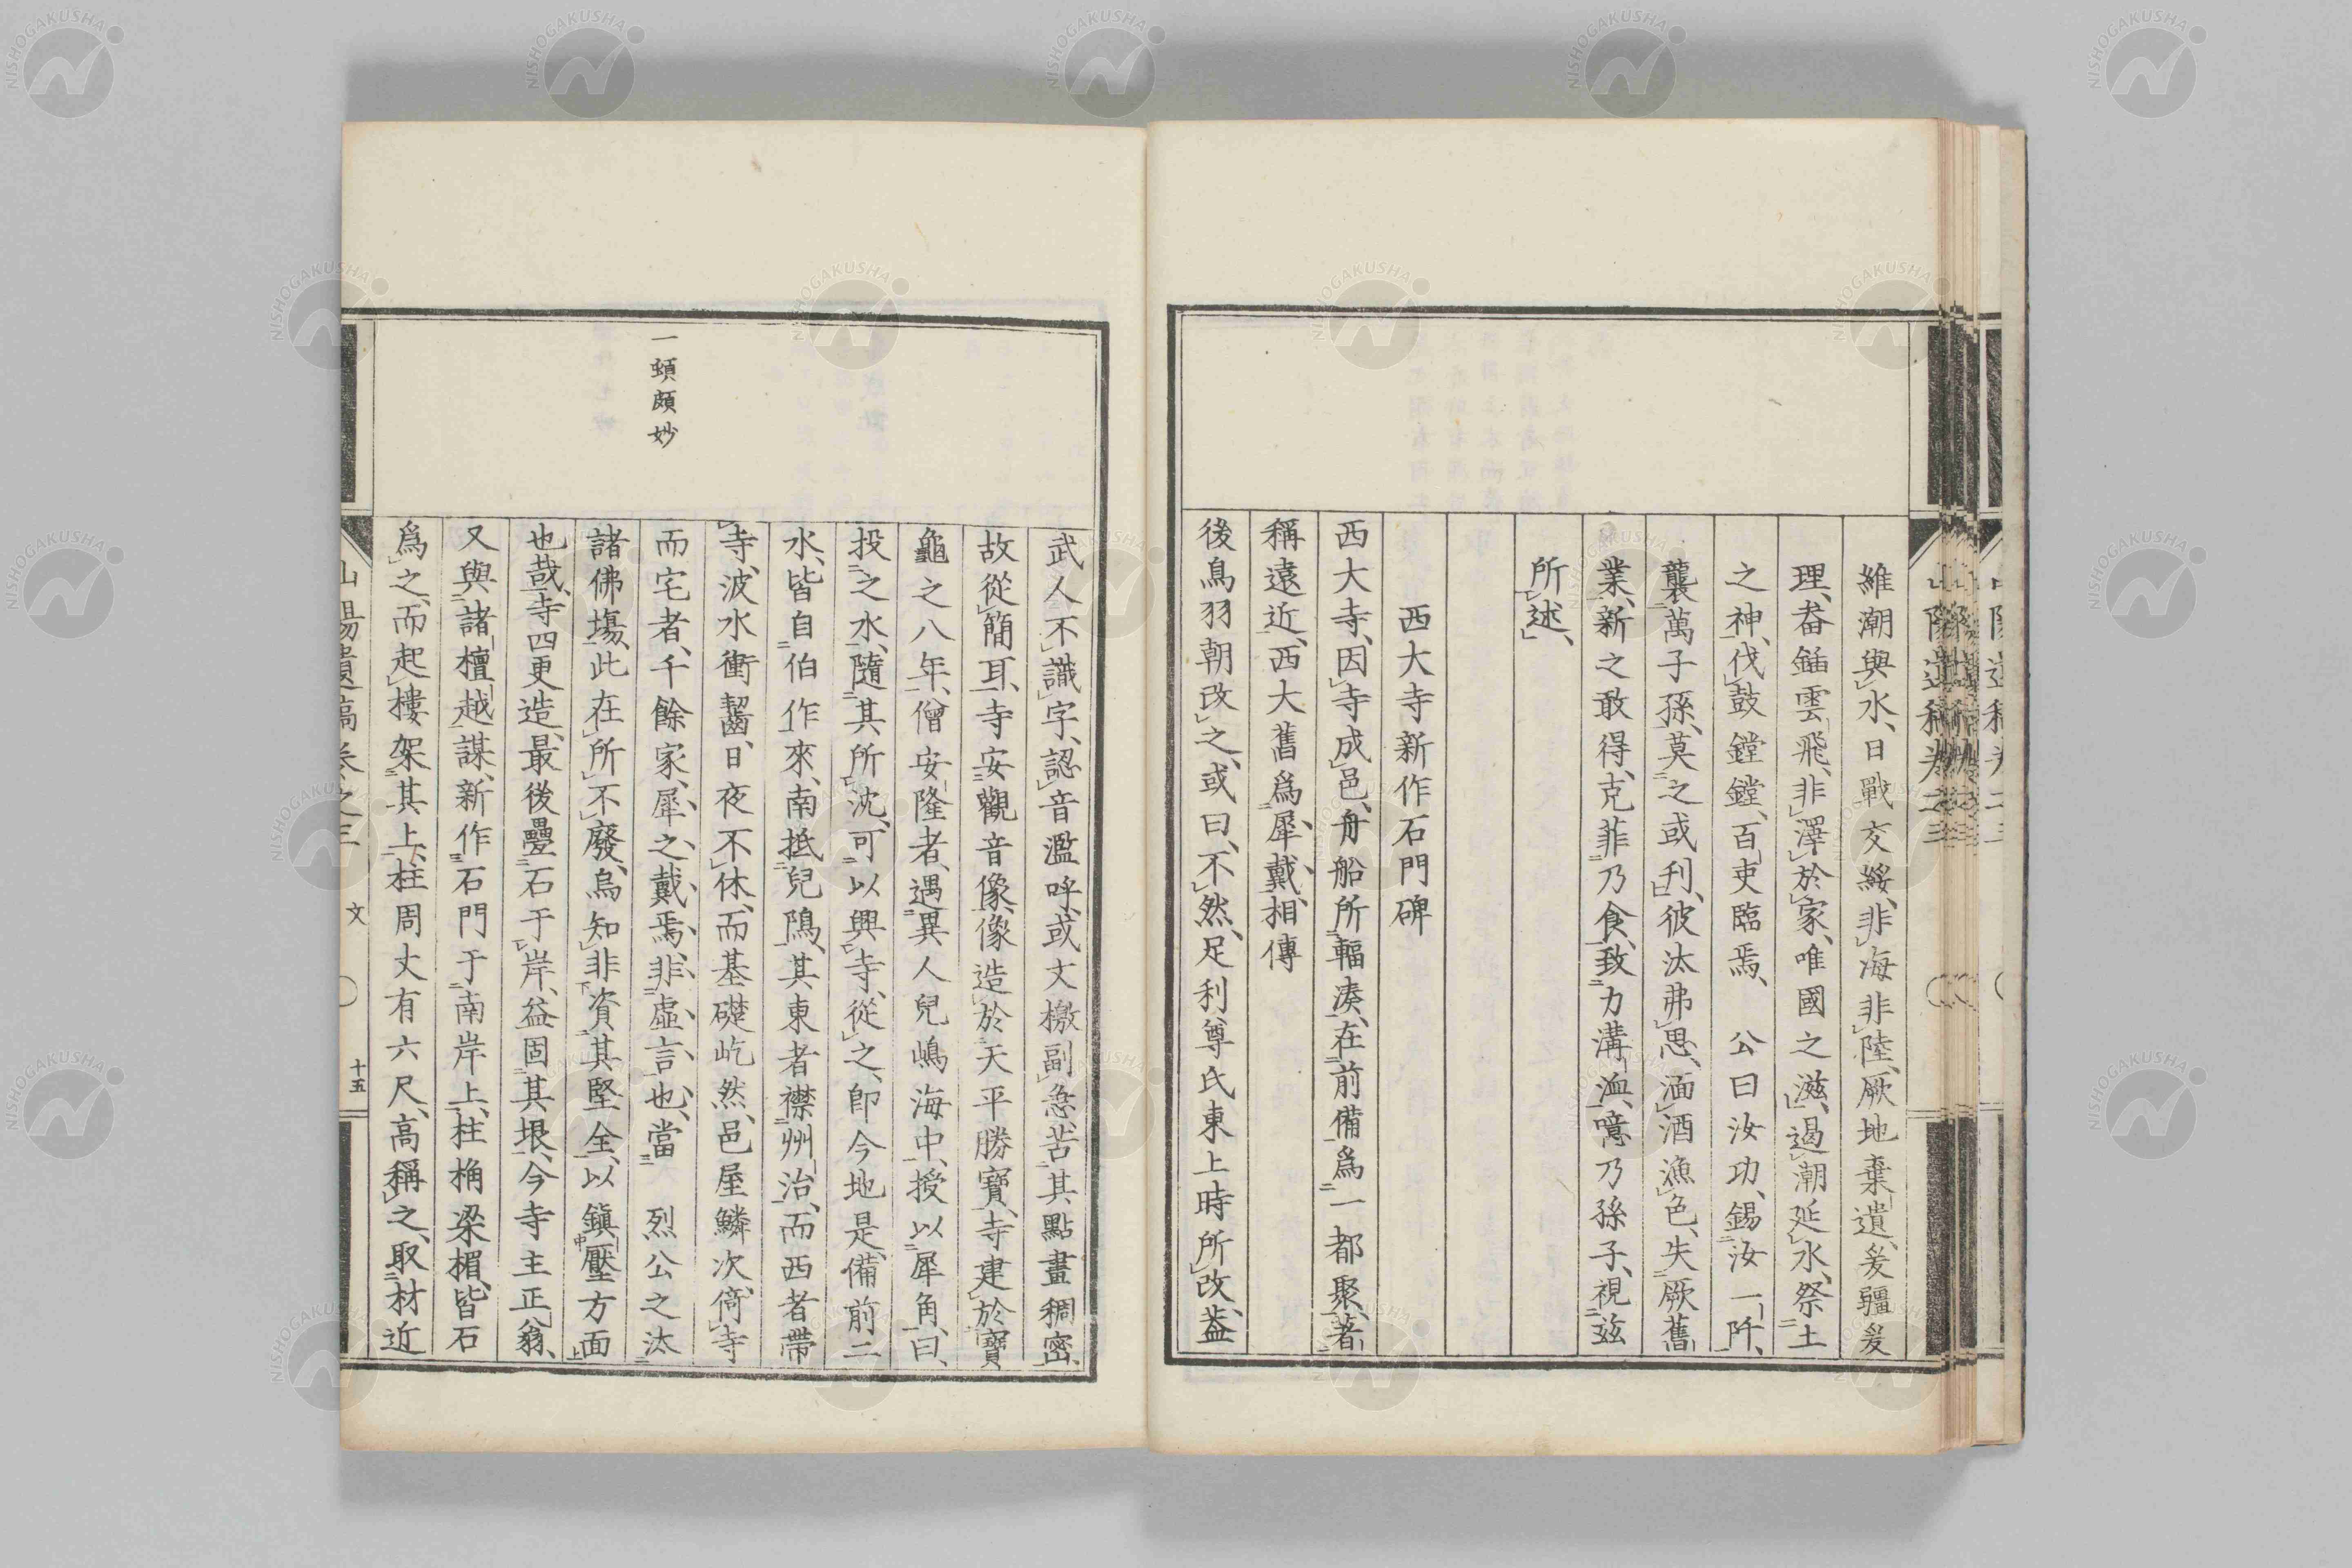 維潮與水、日戰交綏、非海非陸、厥地棄遺、爰疆爰
理、畚鍤雲飛、非澤於家、唯國之滋、遏潮延水、祭土
之神、伐鼓鏜鏜、百吏臨焉、公曰汝功、錫汝一阡、
襲萬子孫、莫之或利、彼汰弗思、湎酒漁色、失厥舊
業、新之敢得、克菲乃食、致力溝洫、噫乃孫子、視玆
所述、
西大寺新作石門碑
西大寺、因寺成邑、舟船所輻湊、在前備爲一都聚、著
稱遠近、西大舊爲犀戴、相傳
後鳥羽朝改之、或曰、不然、足利尊氏東上時所改、蓋
武人不識字、認音濫呼、或文檄副急、苦其點畫稠密、
故從簡耳、寺安觀音像、像造於天平勝寶、寺建於寶
龜之八年、僧安隆者、遇異人兒嶋海中、授以犀角、曰、
投之水、隨其所沈、可以興寺、從之、卽今地是、備前二
水、皆自伯作來、南抵兒隝、其東者襟州治、而西者帶
寺、波水衝齧、日夜不休、而基礎屹然、邑屋鱗次、倚寺
而宅者、千餘家、犀之戴焉、非虛言也、當 烈公之汰
諸佛塲、此在所不廢、烏知非資其堅全、以鎭壓方面
也哉、寺四更造、最後疊石于岸、益固其垠、今寺主正翁、
又與諸檀越謀、新作石門于南岸上、柱桷梁楣、皆石
爲之、而起樓架其上、柱周丈有六尺、高稱之、取材近
一頓頗妙
山陽遺稿卷之三 文 十五